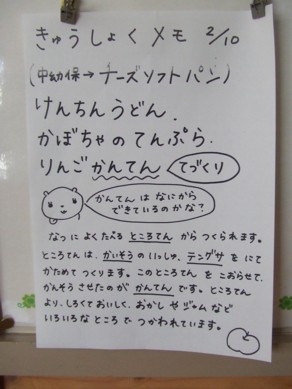 きゅうしょく メモ 2/10
(中幼保→チーズソフトパン)
けんちんうどん.
かぼちゃのてんぷら.
りんごかんてん てづくり
かんてんはなにから
できているのかな?
なつに よくたべる ところてん からつくられます。
ところてんは、かいそうのいっしゅ、テングサ をにて
かためてつくります。このところてんを こおらせて、
かんそうさせたのが かんてん です。ところてん
より、しろくておいしく、おかしやジャムなど
いろいろなところでつかわれています。